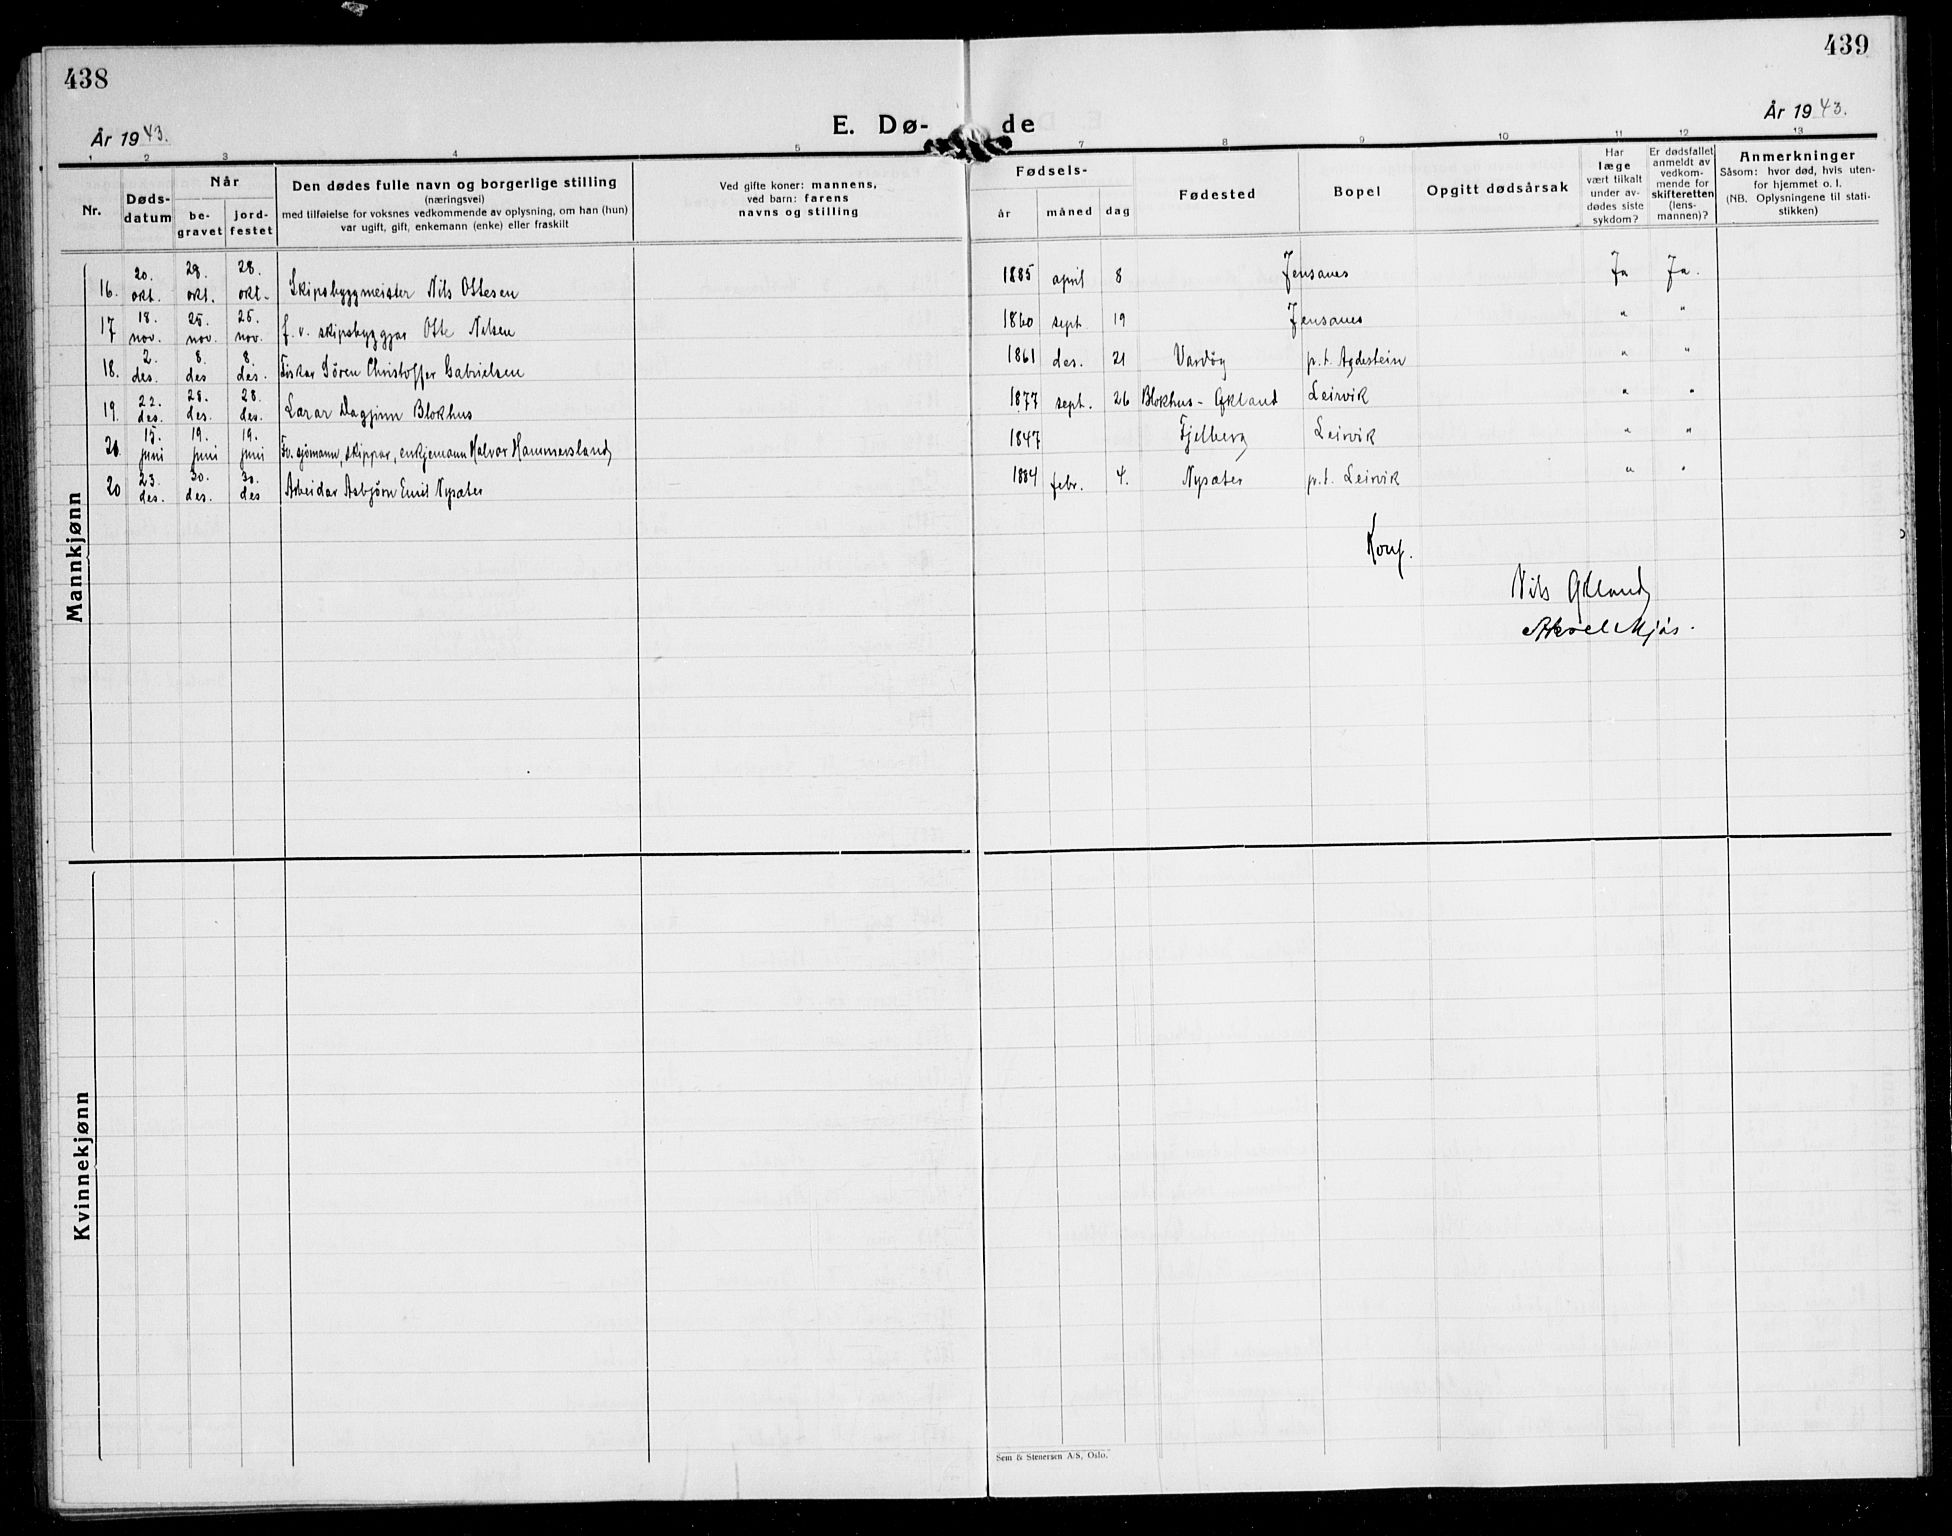 438
439
År 1943.
E. Dø-
de
År 1943.
1 2 3 4 5 7 8 9 10 11 12 13
Nr.
Døds-
datum
Når
be-
gravet
jord-
festet
Den dødes fulle navn og borgerlige stilling
(næringsvei)
med tilføielse for voksnes vedkommende av oplysning, om han (hun)
var ugift, gift, enkemann (enke) eller fraskilt
Ved gifte koner: mannens,
ved barn: farens
navns og stilling
Fødsels-
år måned dag
Fødested
Bopel
Opgitt dødsårsak
Har
læge
vært tilkalt
under av-
dødes siste
sykdom?
Er dødsfallet
anmeldt av
vedkom-
mende for
skifteretten
(lens-
mannen)?
Anmerkninger
Såsom: hvor død, hvis uten-
for hjemmet o. l.
(NB. Oplysningene til stati-
stikken)
Mannkjønn
16. 20. okt. 28. okt. 28. okt. Skipsbyggmeister Nils Ottesen 1885 april 8 Jensanes Ja Ja.
17 18. nov. 25. nov. 25. nov. f. v. skipsbyggjar Otte Nilsen 1860 sept. 19 Jensanes " "
18. 2. des. 8. des 8. des. Fiskar Sören Christoffer Gabrielsen 1861 des. 21 Vardöy p.t. Agdestein " "
19. 22. des. 28. des. 28. des. Lærar Dagfinn Blokhus 1877 sept. 26 Blokhus - Økland Leirvik " "
20. 15. juni 19. juni 19. juni Fv. sjömann, skippar, enkjemann Halvor Hammersland 1847 Fjelberg Leirvik " "
20 23. des. 30. des. 30. des Arbeidar Asbjörn Emil Nysæter 1884 febr. 4. Nysæter p.t. Leirvik " "
Konf.
Nils Økland
Aksel Mjøs.
Kvinnekjønn
Sem & Stenersen A/S, Oslo.